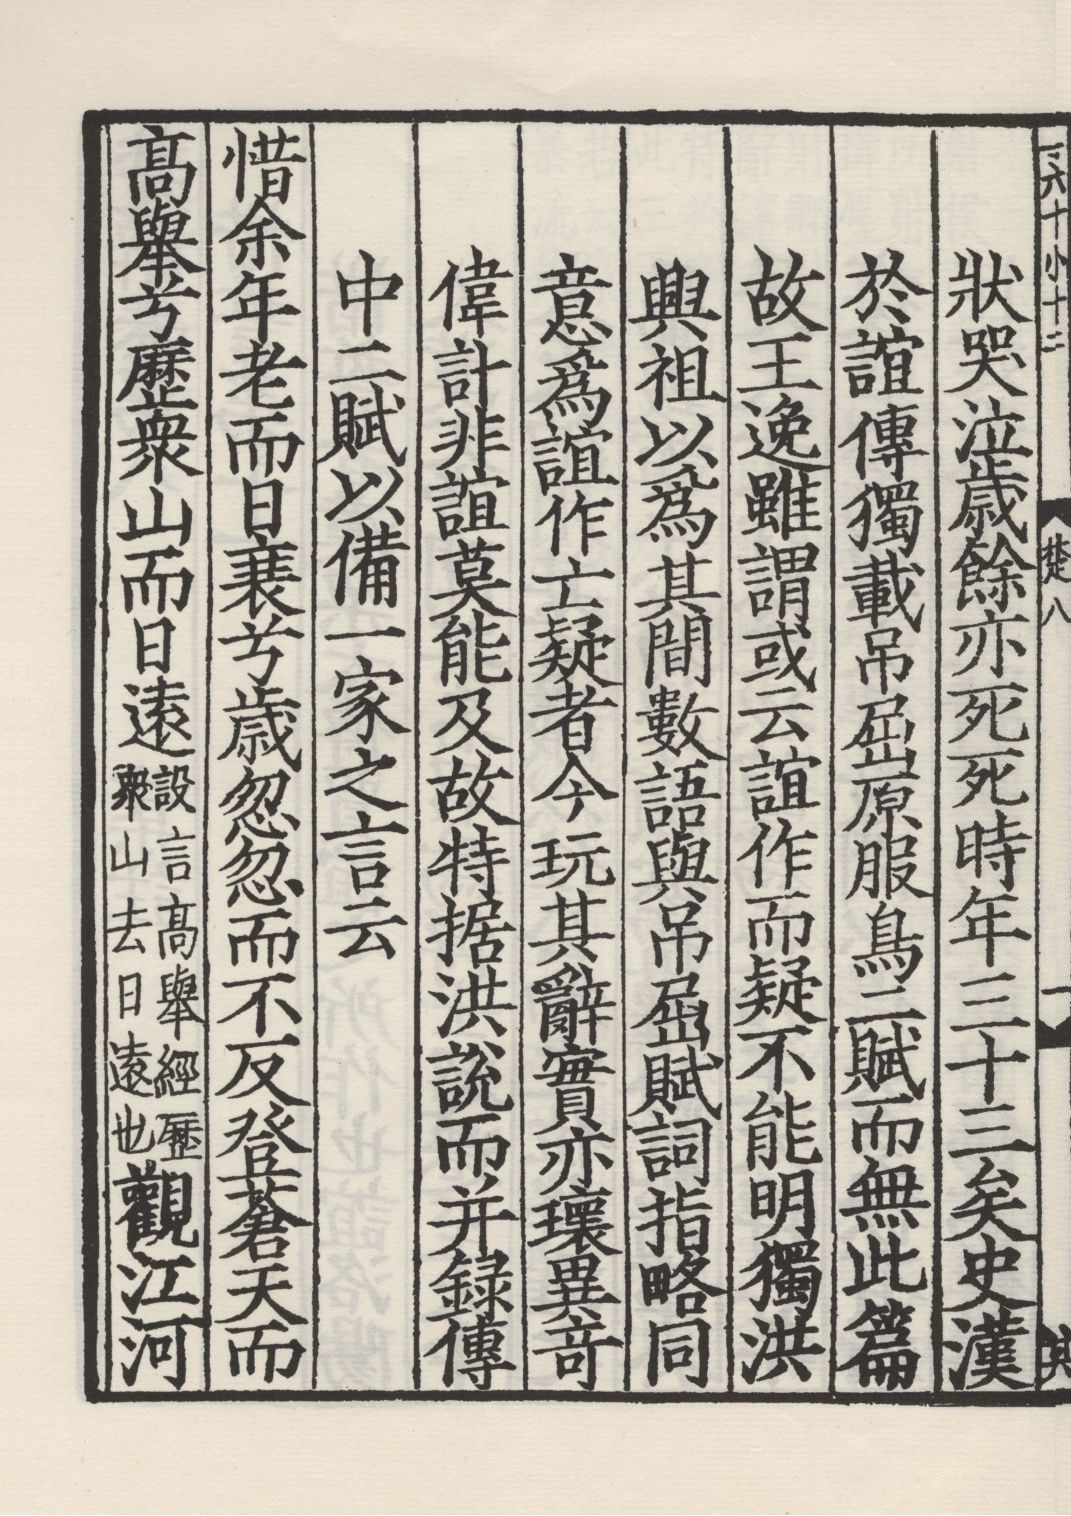 狀哭泣歲餘亦死死時年三十三矣史漢
於誼傳獨載吊屈原服鳥二賦而無此篇
故王逸雖謂或云誼作而疑不能明獨洪
興祖以爲其間數語與吊屈賦詞指略同
意爲誼作亡疑者今玩其辭實亦瓌異奇
偉計非誼莫能及故特据洪說而并録傳
中二賦以備一家之言云
惜余年老而日衰兮歲忽忽而不反登蒼天而
高舉兮歷衆山而日遠設言高舉經歷衆山去日遠也觀江河
六十小十三
楚八
一